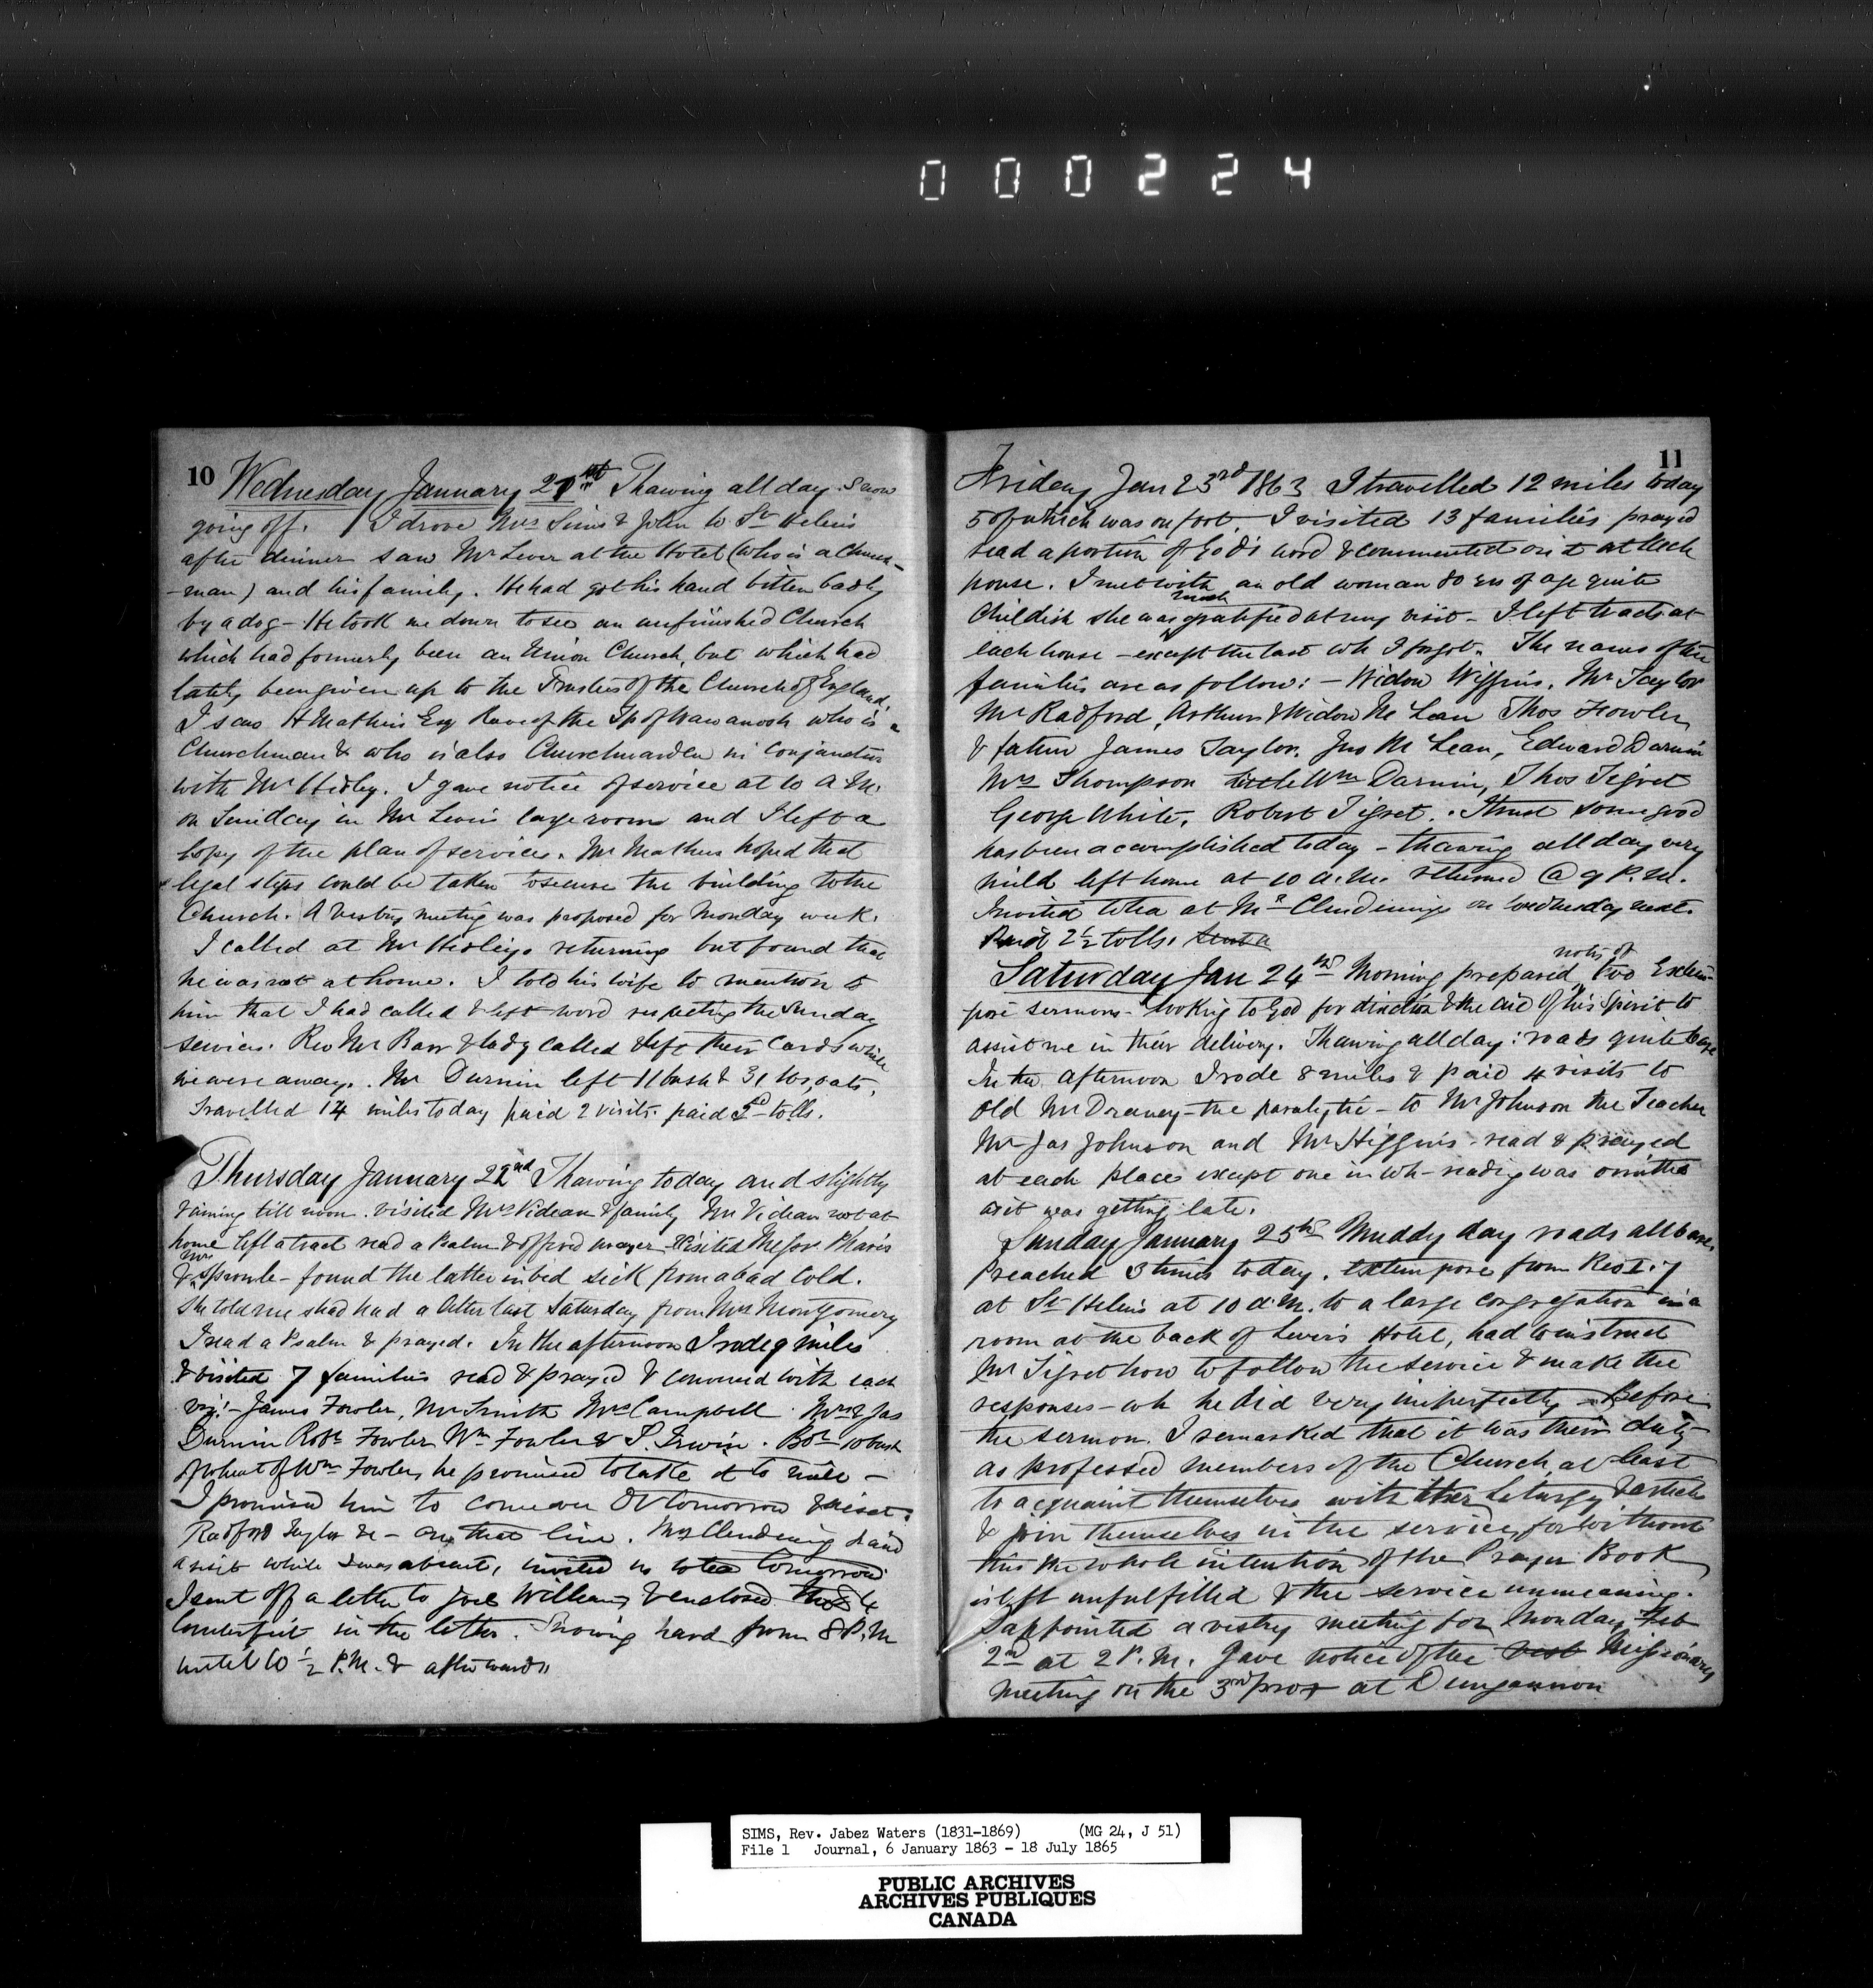 000224
10
Wednesday January 21st Thawing all day. Snow
going off. I drove Mrs Sims & John to St Helens
after dinner saw Mr Lever at the Hotel (who is a Church-
-man) and his family. He had got his hand bitten badly
by a dog - He took me down to see an unfinished Church
which had formerly been an Union Church, but which had
lately been given up to the Trustees of the Church of England.
I saw Mathers Esq Reeve of the Tp of Wawanosh who is a
Churchman & who is also Churchwarden in conjunction
with Mr Hidley. I gave notice of service at 10 A.M.
on Sunday in Mr Levers large room and I left a
Copy of the plan of services. Mr Mathers hoped that
legal steps could be taken to secure the building to the
Church. A Vestry meeting was proposed for Monday week.
I called at Mr returning but found that
he was not at home. I told his wife to mention to
him that I had called & left word respecting the Sunday
services. Rev Mr Barr & lady called & left their Cards while
we were away. Mr Durnin left 11 bush & 31 lbs oats,
Travelled 14 miles today paid 2 visits. paid 5d tolls.
Thursday January 22nd Thawing today and slightly
raining till noon. visited Mrs Videan & family Mr Videan not at
home left a tract read a Psalm & offered prayer - Visited
& Mrs Sproule - found the latter in bed sick from a bad cold.
She told me she had had a letter last Saturday from Mrs Montgomery
I read a Psalm & prayed. In the afternoon I rode 9 miles
& visited 7 families read & prayed & conversed with each
viz:- James Fowler, Mr Smith Mrs Campbell. Mrs & Jas
Durnin Robt Fowler Wm Fowler & P. Irwin. Bot 10 bush
of wheat of Wm Fowler, he promised to take it to mill -
I promised him to come over DV tomorrow & visit
Radford Taylor &c - on that line. Mrs Clendening paid
a visit while I was absent, invited us to tea tomorrow
I sent off a letter to Joel Williams & enclosed the $4
Counterfeit in the letter. Snowing hard from 8 P.M
until 10 1/2 P.M. & afterwards
11
Friday Jan 23rd 1863 I travelled 12 miles today
5 of which was on foot. I visited 13 families prayed
read a portion of God's word & commented on it at each
house. I met with an old woman 80 yrs of age quite
childish she was much gratified at my visit - I left tracts at
each house - except the last wh I forgot. The names of the
families are as follow: - Widow Wiggins, Mr Taylor
Mr Radford, Arthur & Widow Mc Lean Thos Fowler
& father James Taylor. Jno Mc Lean, Edward Darnin
Mrs Thompson Wm Darnin, Thos Tigret
George White, Robert Tigret. I trust some good
has been accomplished today - thawing all day very
mild left home at 10 a.m. returned @ 9 P.M.
Invited to tea at Mr Clendinings on Wednesday next.
Paid 2 1/2 tolls.
Saturday Jan 24th Morning prepared notes of two Extem-
pore sermons - looking to God for direction & the aid of his Spirit to
assist me in their delivery. Thawing all day: roads quite bare
In the afternoon I rode 8 miles & paid 4 visits to
old Mr Draney - the paralytic - to Mr Johnson the Teacher
Mr Jas Johnson and Mr Higgins - read & prayed
at each places except one in wh reading was omitted
as it was getting late.
Sunday January 25th Muddy day roads all bare
Preached 3 times today. Extempore from Rev I. 7
at St Helens at 10 a.m. to a large congregation in a
room at the back of Lever's Hotel, had to instruct
Mr Tigret how to follow the service & make the
responses - wh he did very imperfectly - Before
the sermon I remarked that it was their duty
as professed members of the Church, at least
to acquaint themselves with their Liturgy & articles
& join themselves in the service, for without
this the whole intention of the Prayer Book
is left unfulfilled & the service unmeaning.
I appointed a vestry meeting for Monday Feb
2nd at 2 P.M. Gave notice of the Missionary
meeting on the 3rd prox at Dungannon
SIMS, Rev. Jabez Waters (1831-1869) (MG 24, J 51)
File 1 Journal, 6 January 1863 - 18 July 1865
PUBLIC ARCHIVES
ARCHIVES PUBLIQUES
CANADA